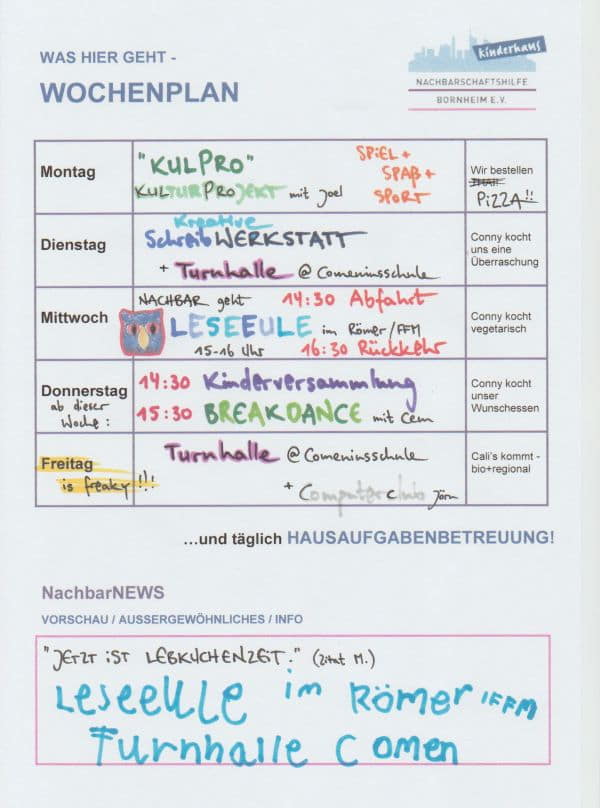 WAS HIER GEHT -
WOCHENPLAN
Kinderhaus
NACHBARSCHAFTSHILFE
BORNHEIM E.V.
Montag
"KULPRO"
KULTURPROJEKT mit Joel
SPiEL +
SPAß +
SPORT
Wir bestellen
THAI
PiZZA!!
Dienstag
Kreative
SchreibWERKSTATT
+ Turnhalle @ Comeniusschule
Conny kocht
uns eine
Überraschung
Mittwoch
NACHBAR geht 14:30 Abfahrt
LESEEULE im Römer/FFM
15-16 Uhr 16:30 Rückkehr
Conny kocht
vegetarisch
Donnerstag
ab dieser
Woche:
14:30 Kinderversammlung
15:30 BREAKDANCE mit Cem
Conny kocht
unser
Wunschessen
Freitag
is freaky!!!
Turnhalle @ Comeniusschule
+ Computerclub Jörn
Cali's kommt -
bio+regional
...und täglich HAUSAUFGABENBETREUUNG!
NachbarNEWS
VORSCHAU / AUSSERGEWÖHNLICHES / INFO
"JETZT iST LEBKUCHENZEIT." (Zitat M.)
Leseeule im Römer /FFM
Turnhalle Comen